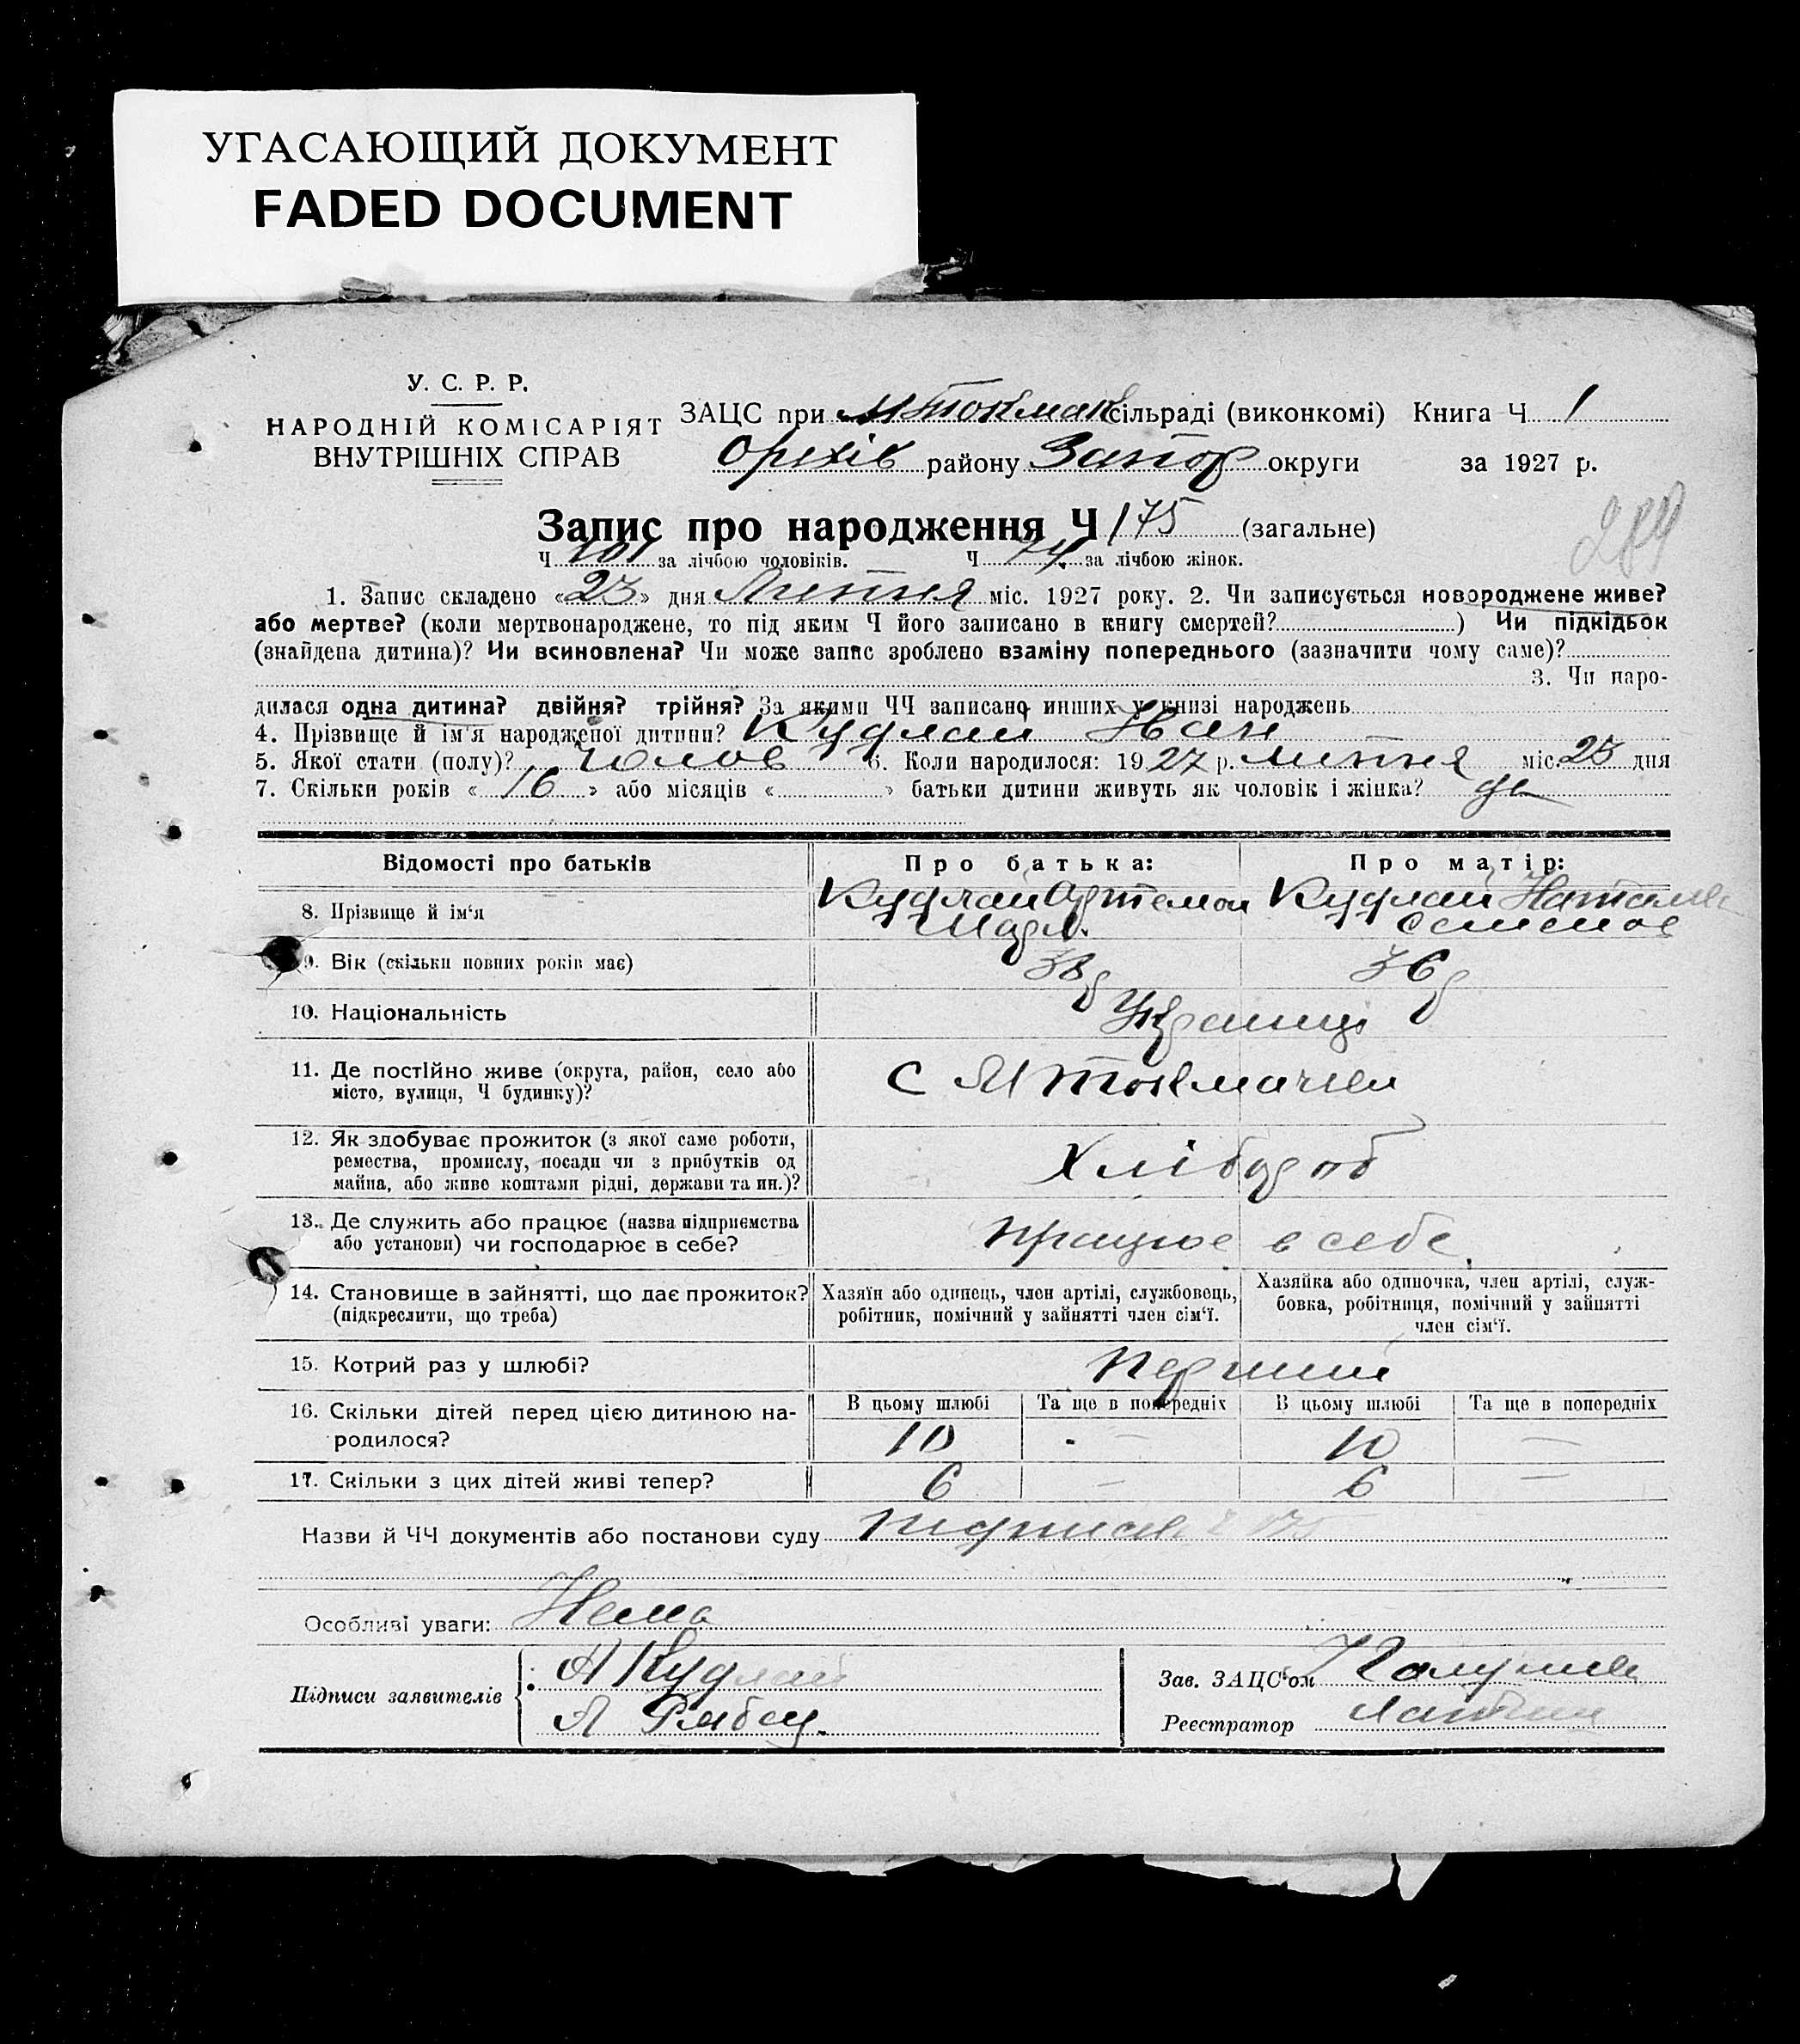 УГАСАЮЩИЙ ДОКУМЕНТ
FADED DOCUMENT
У. С. Р. Р.
НАРОДНІЙ КОМІСАРІЯТ
ВНУТРІШНІХ СПРАВ
ЗАЦС при М Токмак сільраді (виконкомі) Книга Ч 1
Орехів району Запор округи за 1927 р.
Запис про народження Ч 175 (загальне)
289
Ч 101 за лічбою чоловіків. Ч 74 за лічбою жінок.
1. Запис складено «23» дня Липня міс. 1927 року. 2. Чи записується новороджене живе?
або мертве? (коли мертвонароджене, то під яким Ч його записано в книгу смертей?) Чи підкідьок
(знайдена дитина)? Чи всиновлена? Чи може запис зроблено взаміну попереднього (зазначити чому саме)?
3. Чи наро-
дилася одна дитина? двійня? трійня? За якими ЧЧ записано инших у книзі народжень
4. Прізвище й ім'я народженої дитини? Кудлай Иван
5. Якої стати (полу)? Чолов 6. Коли народилося: 1927 р. липня міс. 23 дня
7. Скільки років «16» або місяців « » батьки дитини живуть як чоловік і жінка? да
Відомості про батьків Про батька: Про матір:
8. Прізвище й ім'я Кудлай Артемон Кудлай Наталия
Семенов
9. Вік (скільки повних років має) 38 р 36 р
10. Національність Українці
11. Де постійно живе (округа, район, село або
місто, вулиця, Ч будинку)? С М Токмачки
12. Як здобуває прожиток (з якої саме роботи,
ремества, промислу, посади чи з прибутків од
майна, або живе коштами рідні, держави та ин.)? Хлібороб
13. Де служить або працює (назва підприємства
або установи) чи господарює в себе? працює в себе
14. Становище в зайнятті, що дає прожиток?
(підкреслити, що треба)
Хазяїн або одинець, член артілі, службовець,
робітник, помічний у зайнятті член сім'ї.
Хазяйка або одиночка, член артілі, служ-
бовка, робітниця, помічний у зайнятті
член сім'ї.
15. Котрий раз у шлюбі? Перший
16. Скільки дітей перед цією дитиною на-
родилося?
В цьому шлюбі Та ще в попередніх В цьому шлюбі Та ще в попередніх
10 — 10 —
17. Скільки з цих дітей живі тепер? 6 — 6 —
Назви й ЧЧ документів або постанови суду
Особливі уваги: Нема
Підписи заявителів
А Кудлай
Я Рябец.
Зав. ЗАЦС'ом
Реєстратор